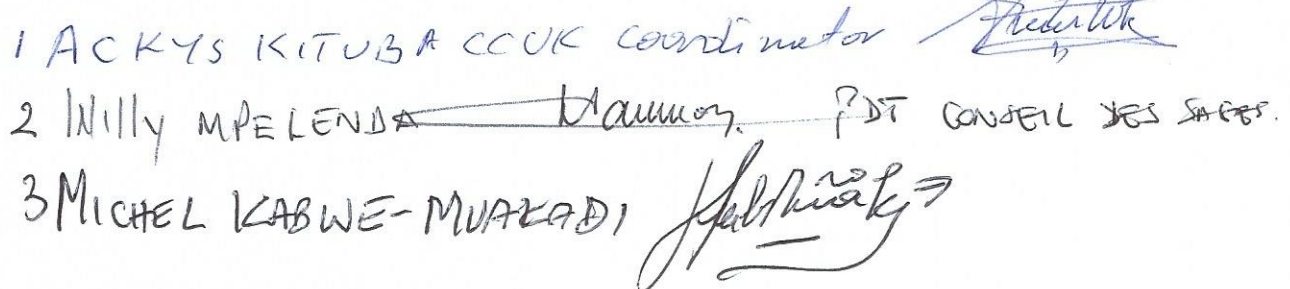 1 ACKYS KITUBA CCUK Coordinator
2 Willy MPELENDA PDT CONSEIL DES SAGES.
3 MICHEL KABWE-MUAKADI